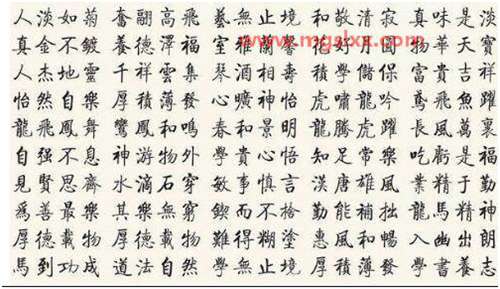 人淡如菊 奮翮高飛 藝無止境 和敬清寂 真味是淡
真金不鍍 養德澤福 雅蘭 好 物華天寶
人杰地靈 千祥雲集 琴 相壽 積學儲 富貴吉祥
怡然自樂 厚積薄發 心曠神怡 虎嘯龍吟 鳶飛魚躍
龍飛鳳舞 鸞鳳和鳴 春和景明 龍騰虎躍 長風萬里
自强不息 神游物外 學貴心悟 知足常樂 吃虧是福
見賢思齊 水滴石穿 敏事慎言 漢唐雄風 業精于勤
爲善最樂 其樂無窮 鍥而不捨 勤能補拙 龍馬精神
厚德載物 厚德載物 難得糊塗 惠風和暢 入幽出朗
馬到功成 道法自然 學無止境 厚積薄發 學書養志
www.mgslxx.com